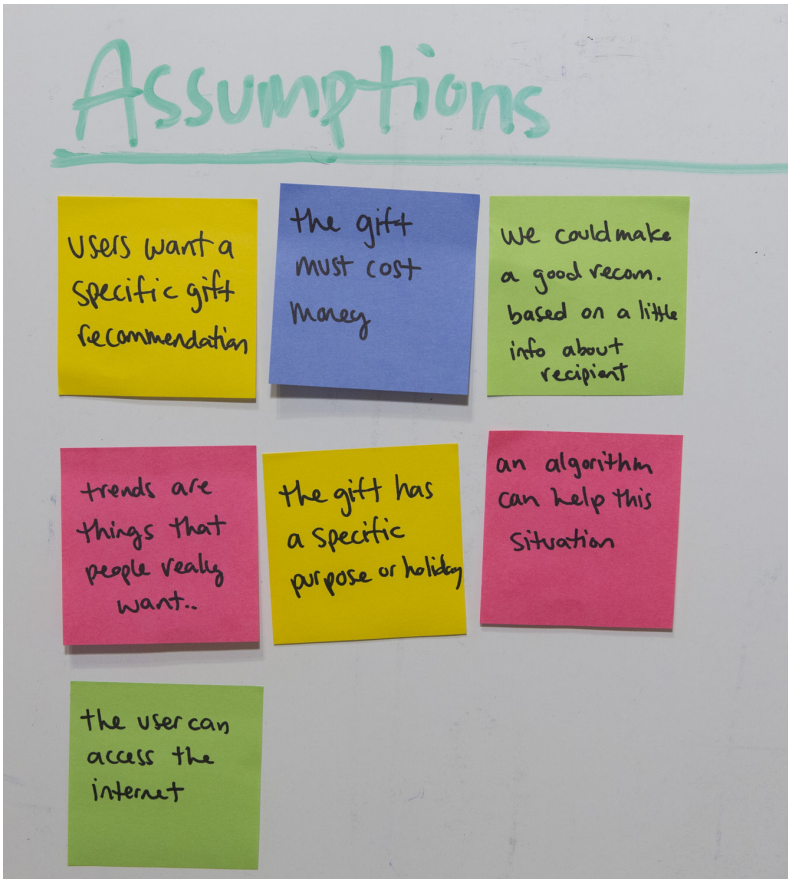 Assumptions
users want a
specific gift
recommendation
the gift
must cost
money
we could make
a good recom.
based on a little
info about
recipient
trends are
things that
people really
want..
the gift has
a specific
purpose or holiday
an algorithm
can help this
situation
the user can
access the
internet